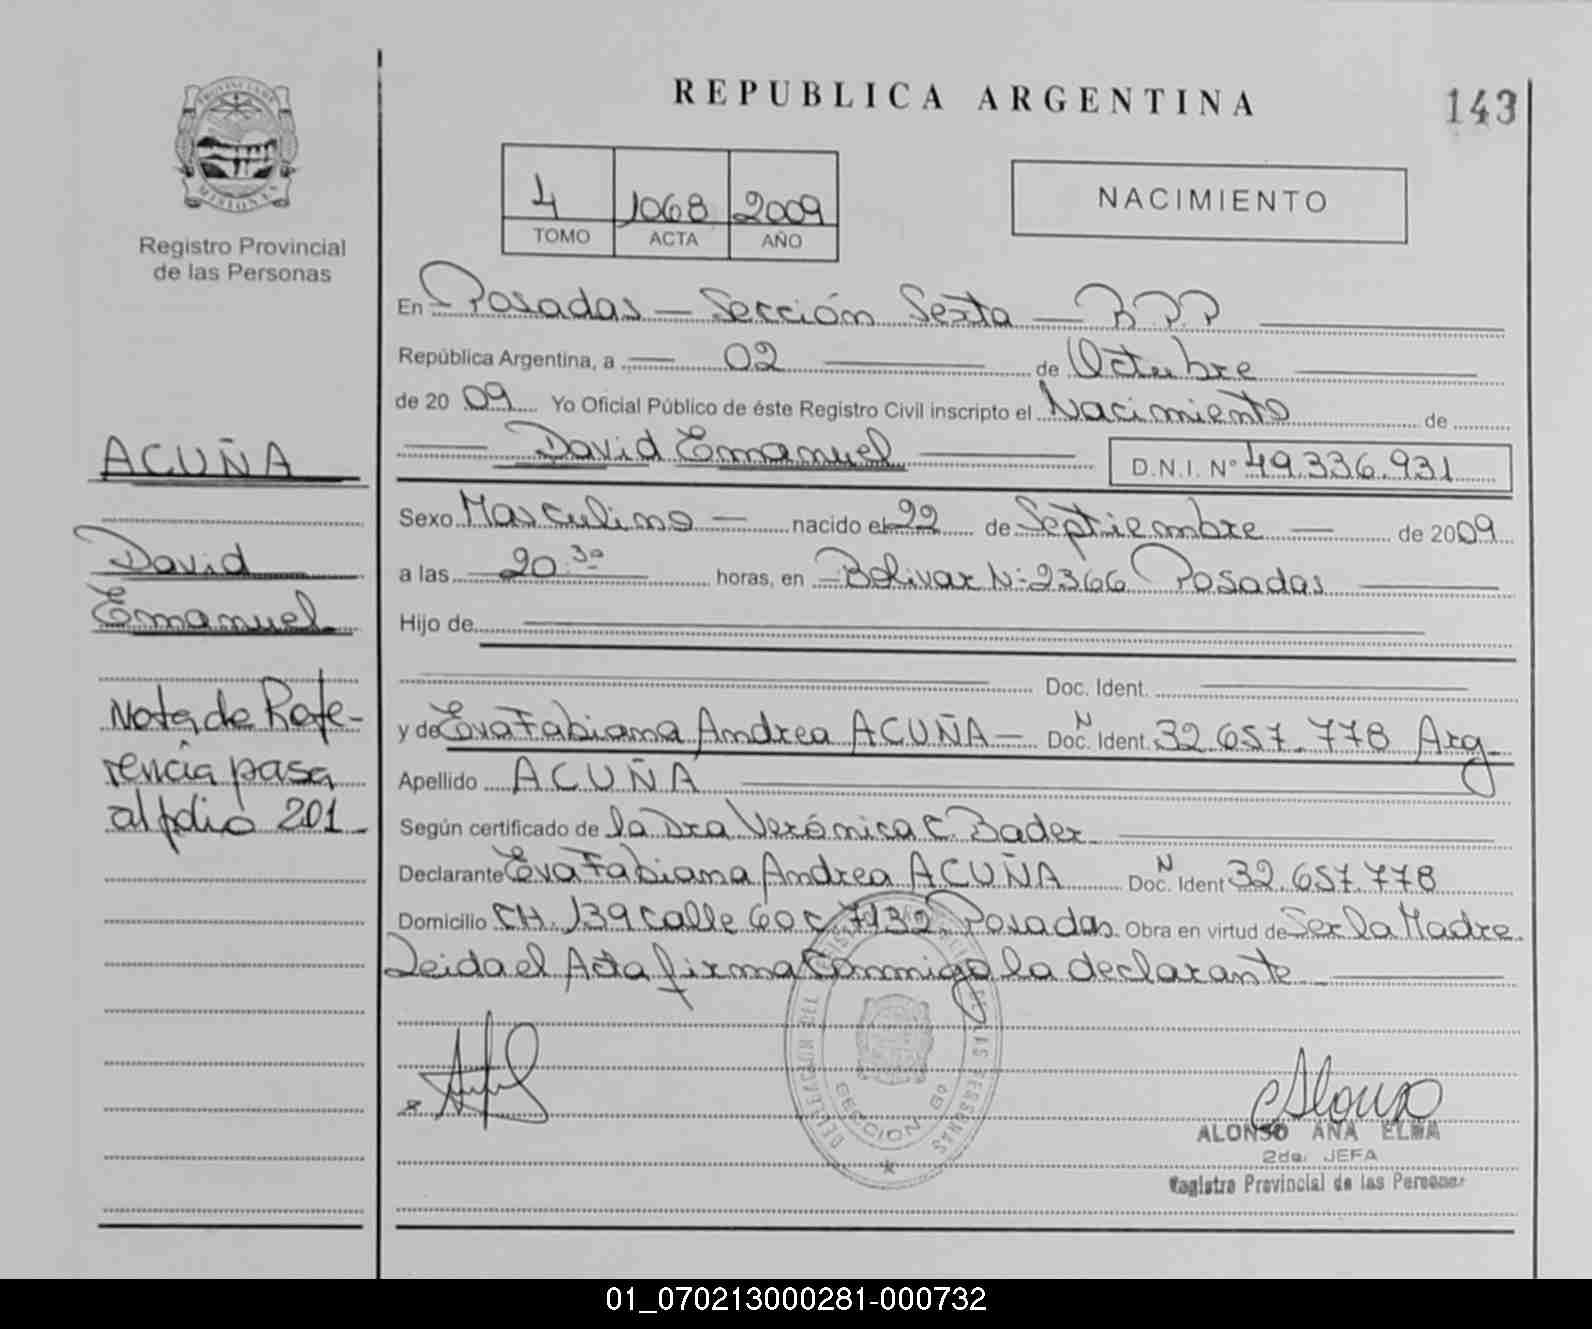 REPUBLICA ARGENTINA
143
PROVINCIA DE
MISIONES
Registro Provincial
de las Personas
4 1068 2009
TOMO ACTA AÑO
NACIMIENTO
En Posadas — Sección Sexta — R.P.P
República Argentina, a — 02 — de Octubre
de 20 09 Yo Oficial Público de éste Registro Civil inscripto el Nacimiento de
David Emanuel D.N.I. Nº 49.336.931
Sexo Masculino — nacido el 22 de Septiembre — de 2009
a las 20.30 horas, en Bolivar Nº 2366 Posadas
Hijo de
Doc. Ident.
y de Eva Fabiana Andrea ACUÑA — N Doc. Ident. 32.657.778 Arg
Apellido ACUÑA
Según certificado de la Dra Verónica C. Bader
Declarante Eva Fabiana Andrea ACUÑA N Doc. Ident 32.657.778
Domicilio CH. 139 calle 60 C. 7132 Posadas. Obra en virtud de Ser la Madre.
Leida el Acta firma Conmigo la declarante
ACUÑA
David
Emanuel
Nota de Refe-
rencia pasa
al folio 201
DELEGACION DEL
DE LAS PERSONAS
SECCION 6º
ALONSO ANA ELBA
2da. JEFA
Registro Provincial de las Personas
01_070213000281-000732